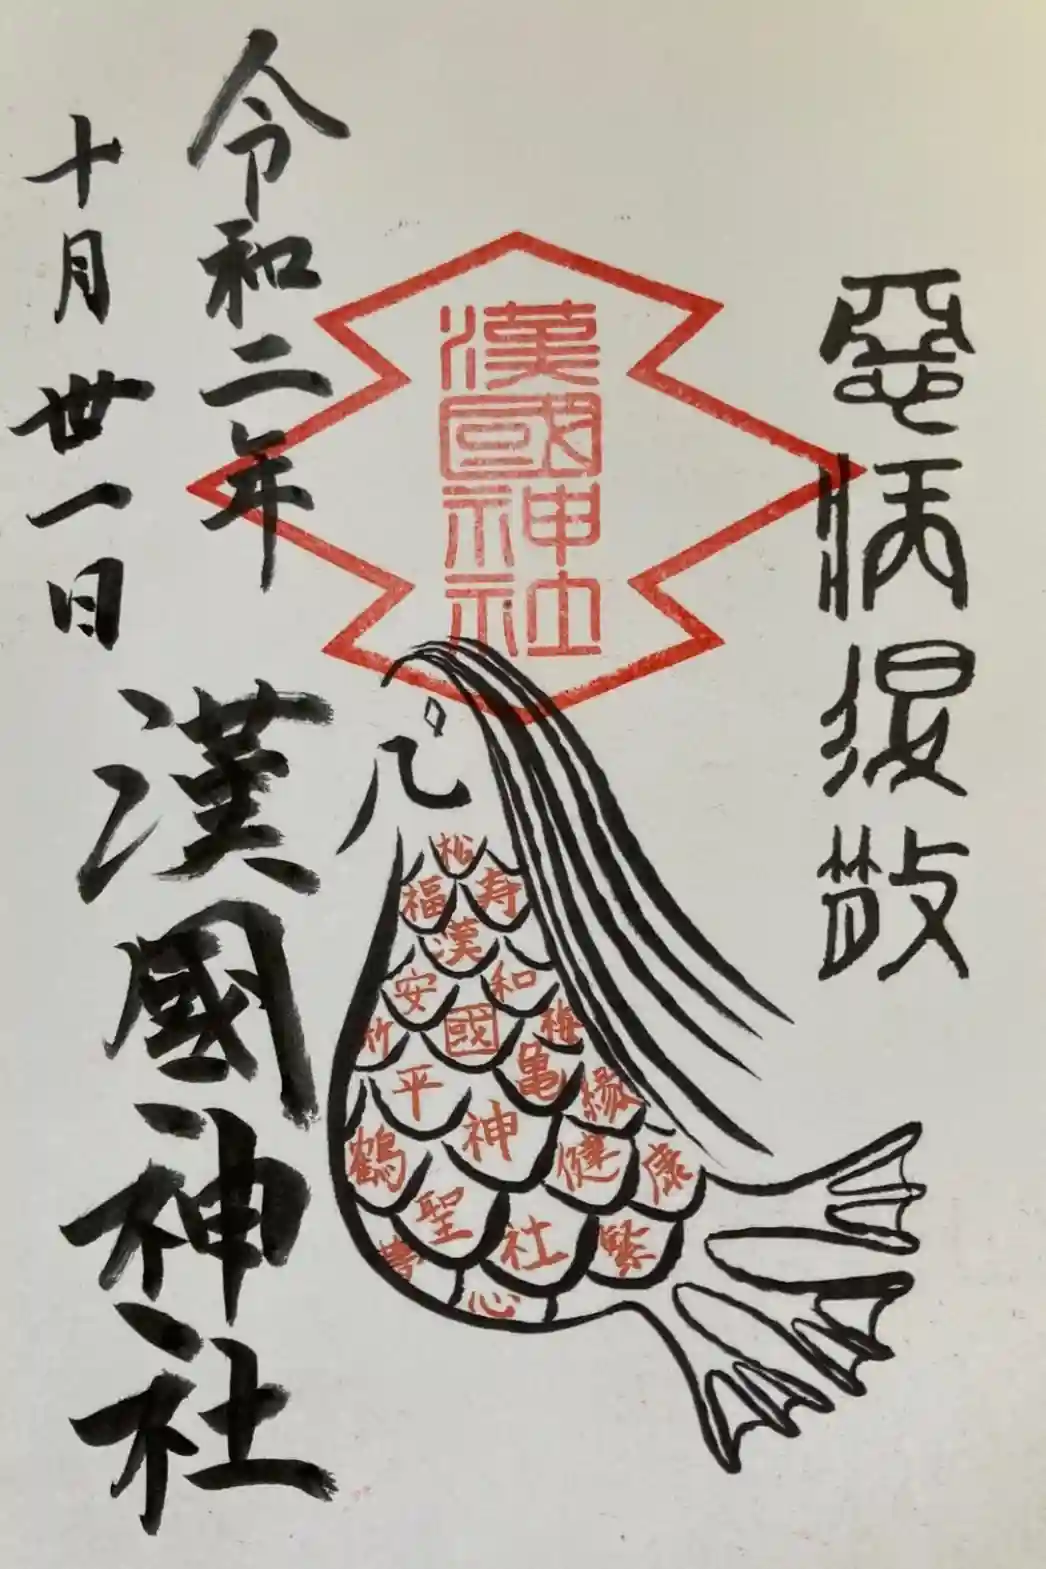 惡病退散
漢國
神社
松
福寿
漢
安和
竹國梅
平亀縁
鶴神健康
聖社繁
心
令和二年
十月卅一日
漢國神社